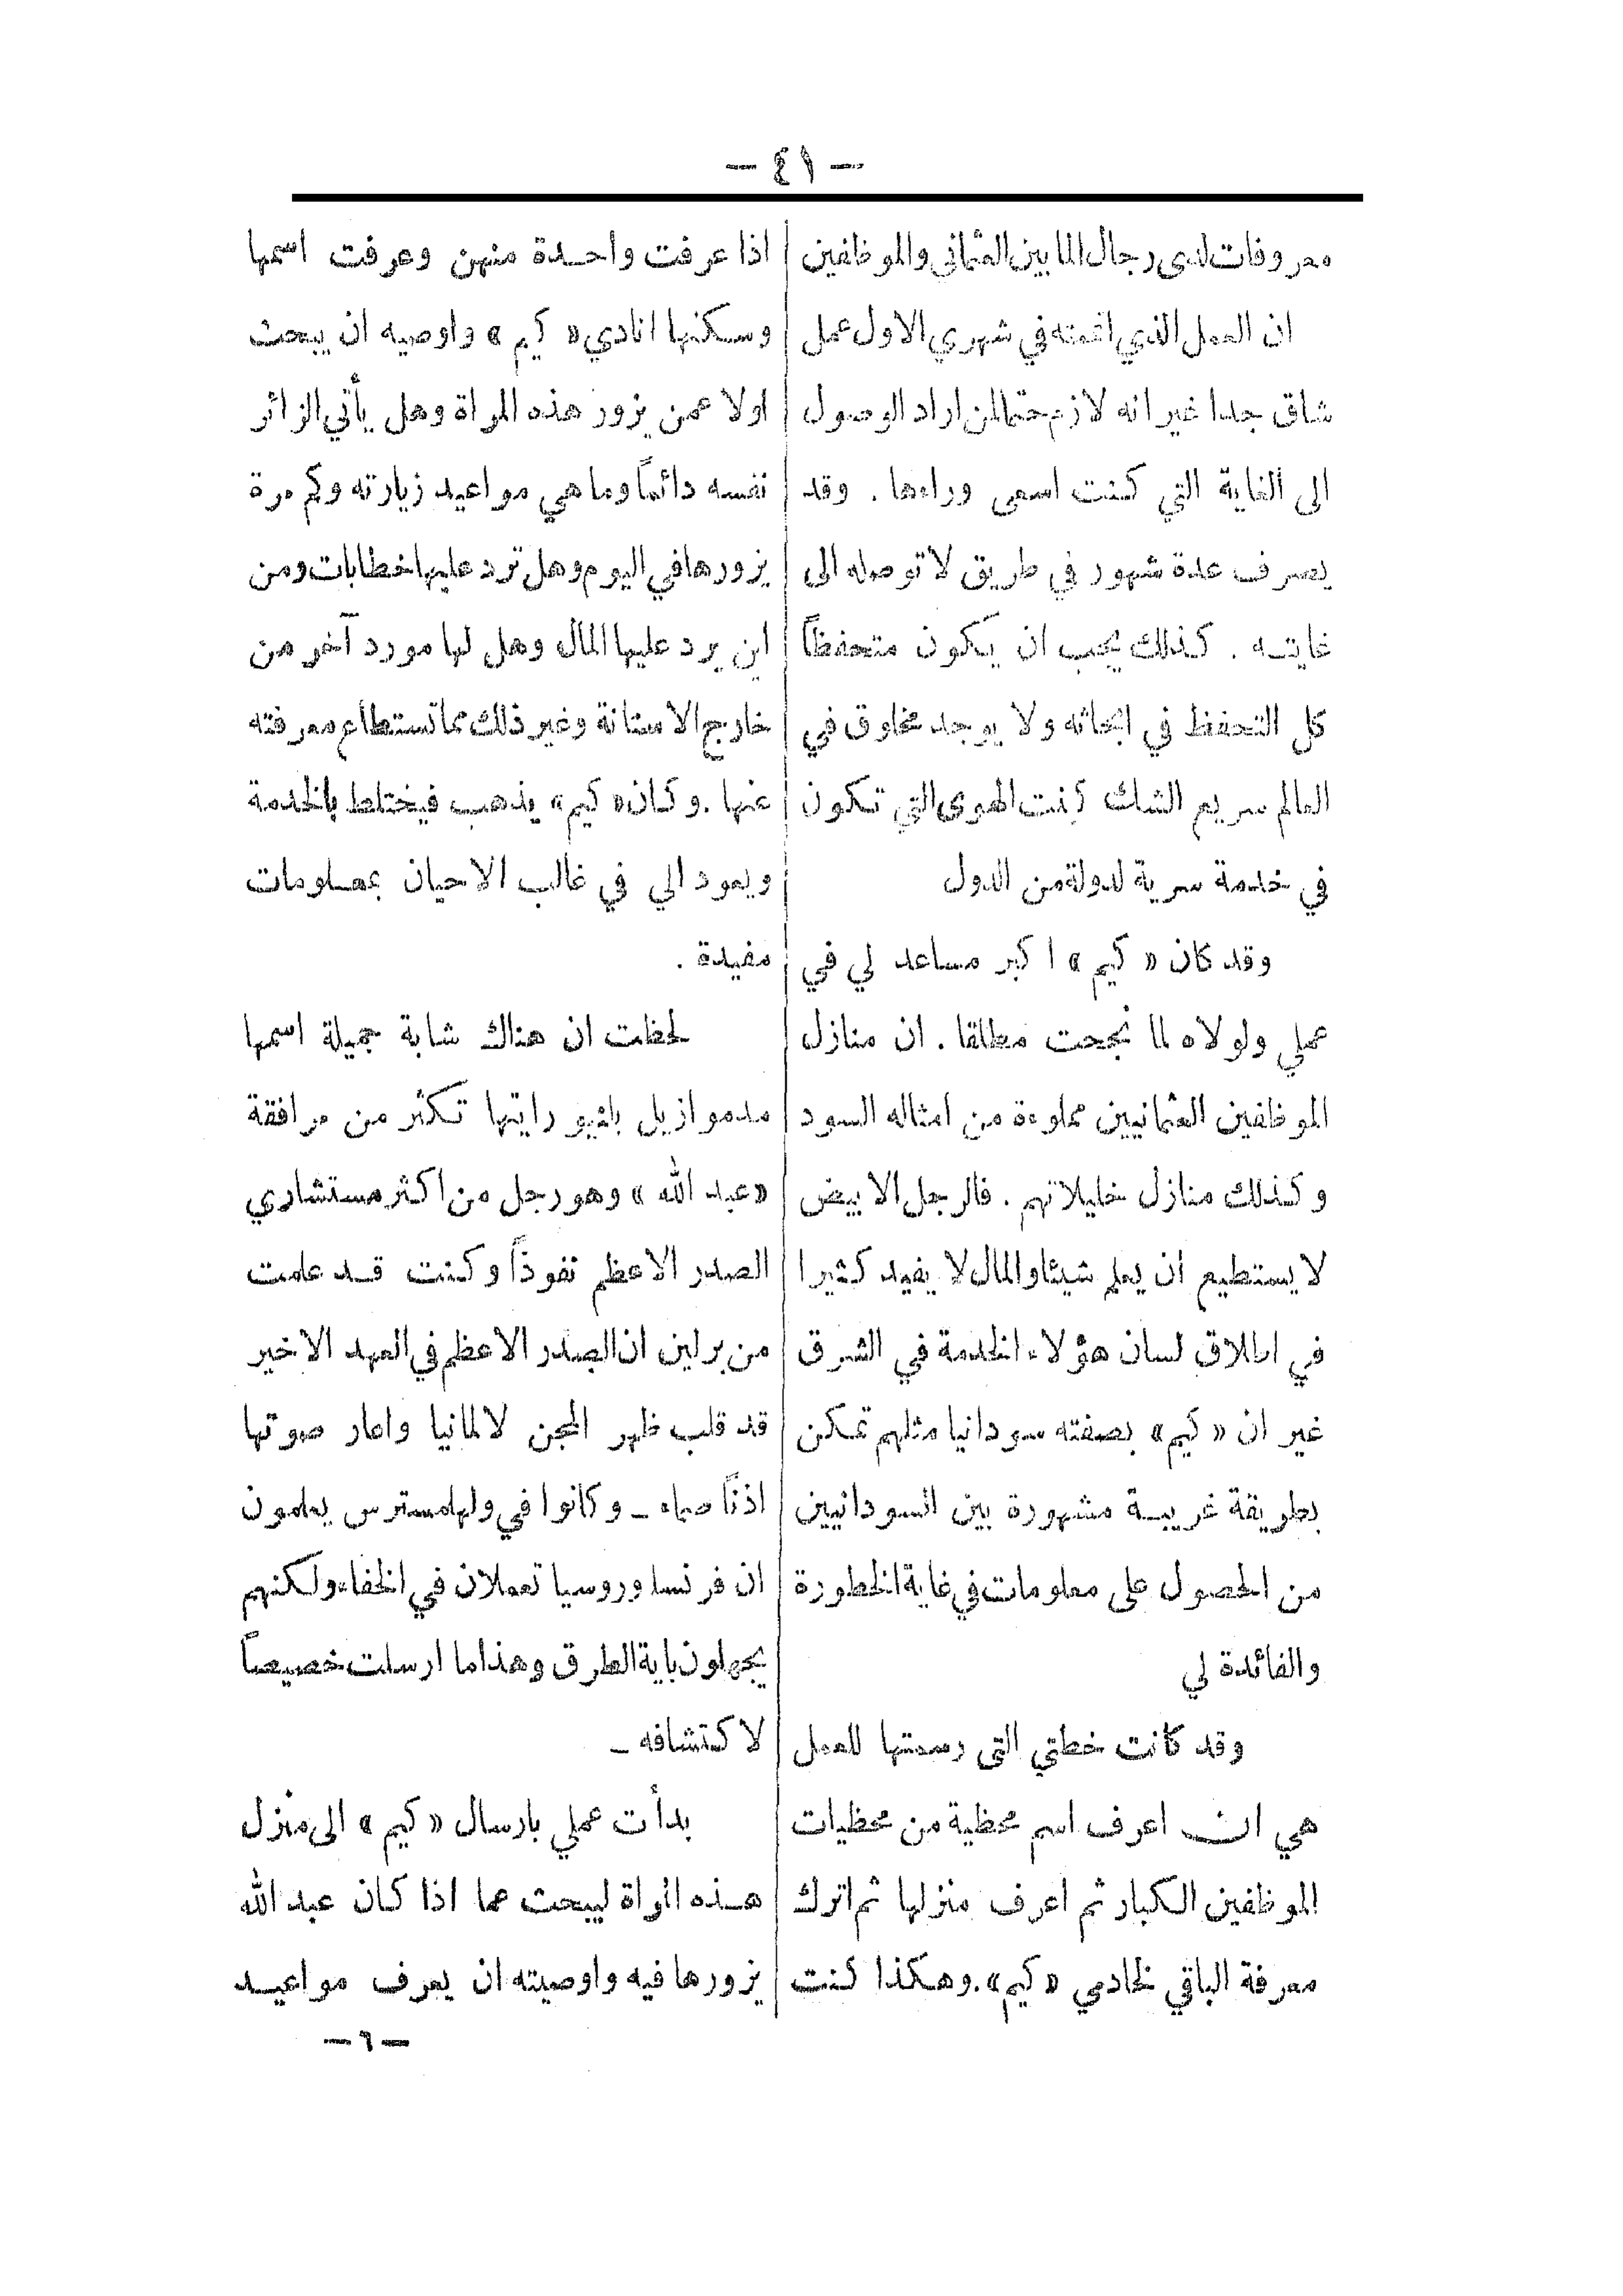 — ٤١ —
معروفات لدى رجال المابين العثماني والموظفين
ان العمل الذي اتممته في شهري الاول عمل
شاق جدا غير انه لازم حتما لمن اراد الوصول
الى الغاية التي كنت اسعى وراءها . وقد
يصرف عدة شهور في طريق لا توصله الى
غايته . كذلك يجب ان يكون متحفظاً
كل التحفظ في ابحاثه ولا يوجد مخلوق في
العالم سريع الشك كبنت الهوى التي تكون
في خدمة سرية لدولة من الدول
وقد كان « كيم » اكبر مساعد لي في
عملي ولولاه لما نجحت مطلقا . ان منازل
الموظفين العثمانيين مملوءة من امثاله السود
وكذلك منازل خليلاتهم . فالرجل الابيض
لا يستطيع ان يعلم شيئا والمال لا يفيد كثيرا
في اطلاق لسان هؤلاء الخدمة في الشرق
غير ان « كيم » بصفته سودانيا مثلهم تمكن
بطريقة غريبة مشهورة بين السودانيين
من الحصول على معلومات في غاية الخطورة
والفائدة لي
وقد كانت خطتي التى رسمتها للعمل
هي ان اعرف اسم محظية من محظيات
الموظفين الكبار ثم اعرف منزلها ثم اترك
معرفة الباقي لخادمي « كيم » . وهكذا كنت
اذا عرفت واحدة منهن وعرفت اسمها
وسكنها انادي « كيم » واوصيه ان يبحث
اولا عمن يزور هذه المراة وهل يأتي الزائر
نفسه دائماً وما هي مواعيد زيارته وكم مرة
يزورها في اليوم وهل ترد عليها خطابات ومن
اين يرد عليها المال وهل لها مورد آخر من
خارج الاستانة وغير ذلك مما تستطاع معرفته
عنها . وكان « كيم » يذهب فيختلط بالخدمة
ويعود الي في غالب الاحيان بمعلومات
مفيدة .
لحظت ان هناك شابة جميلة اسمها
مدموازيل رايتها تكثر من مرافقة
« عبد الله » وهو رجل من اكثر مستشاري
الصدر الاعظم نفوذاً وكنت قد علمت
من برلين ان الصدر الاعظم في العهد الاخير
قد قلب ظهر المجن لالمانيا واعار صوتها
اذناً صماء ــ وكانوا في ولهلمسترس يعلمون
ان فرنسا وروسيا تعملان في الخفاء ولكنهم
يجهلون باية الطرق وهذا ما ارسلت خصيصاً
لاكتشافه ــ
بدأت عملي بارسال « كيم » الى منزل
هذه المراة ليبحث عما اذا كان عبد الله
يزورها فيه واوصيته ان يعرف مواعيد
— ٦ —